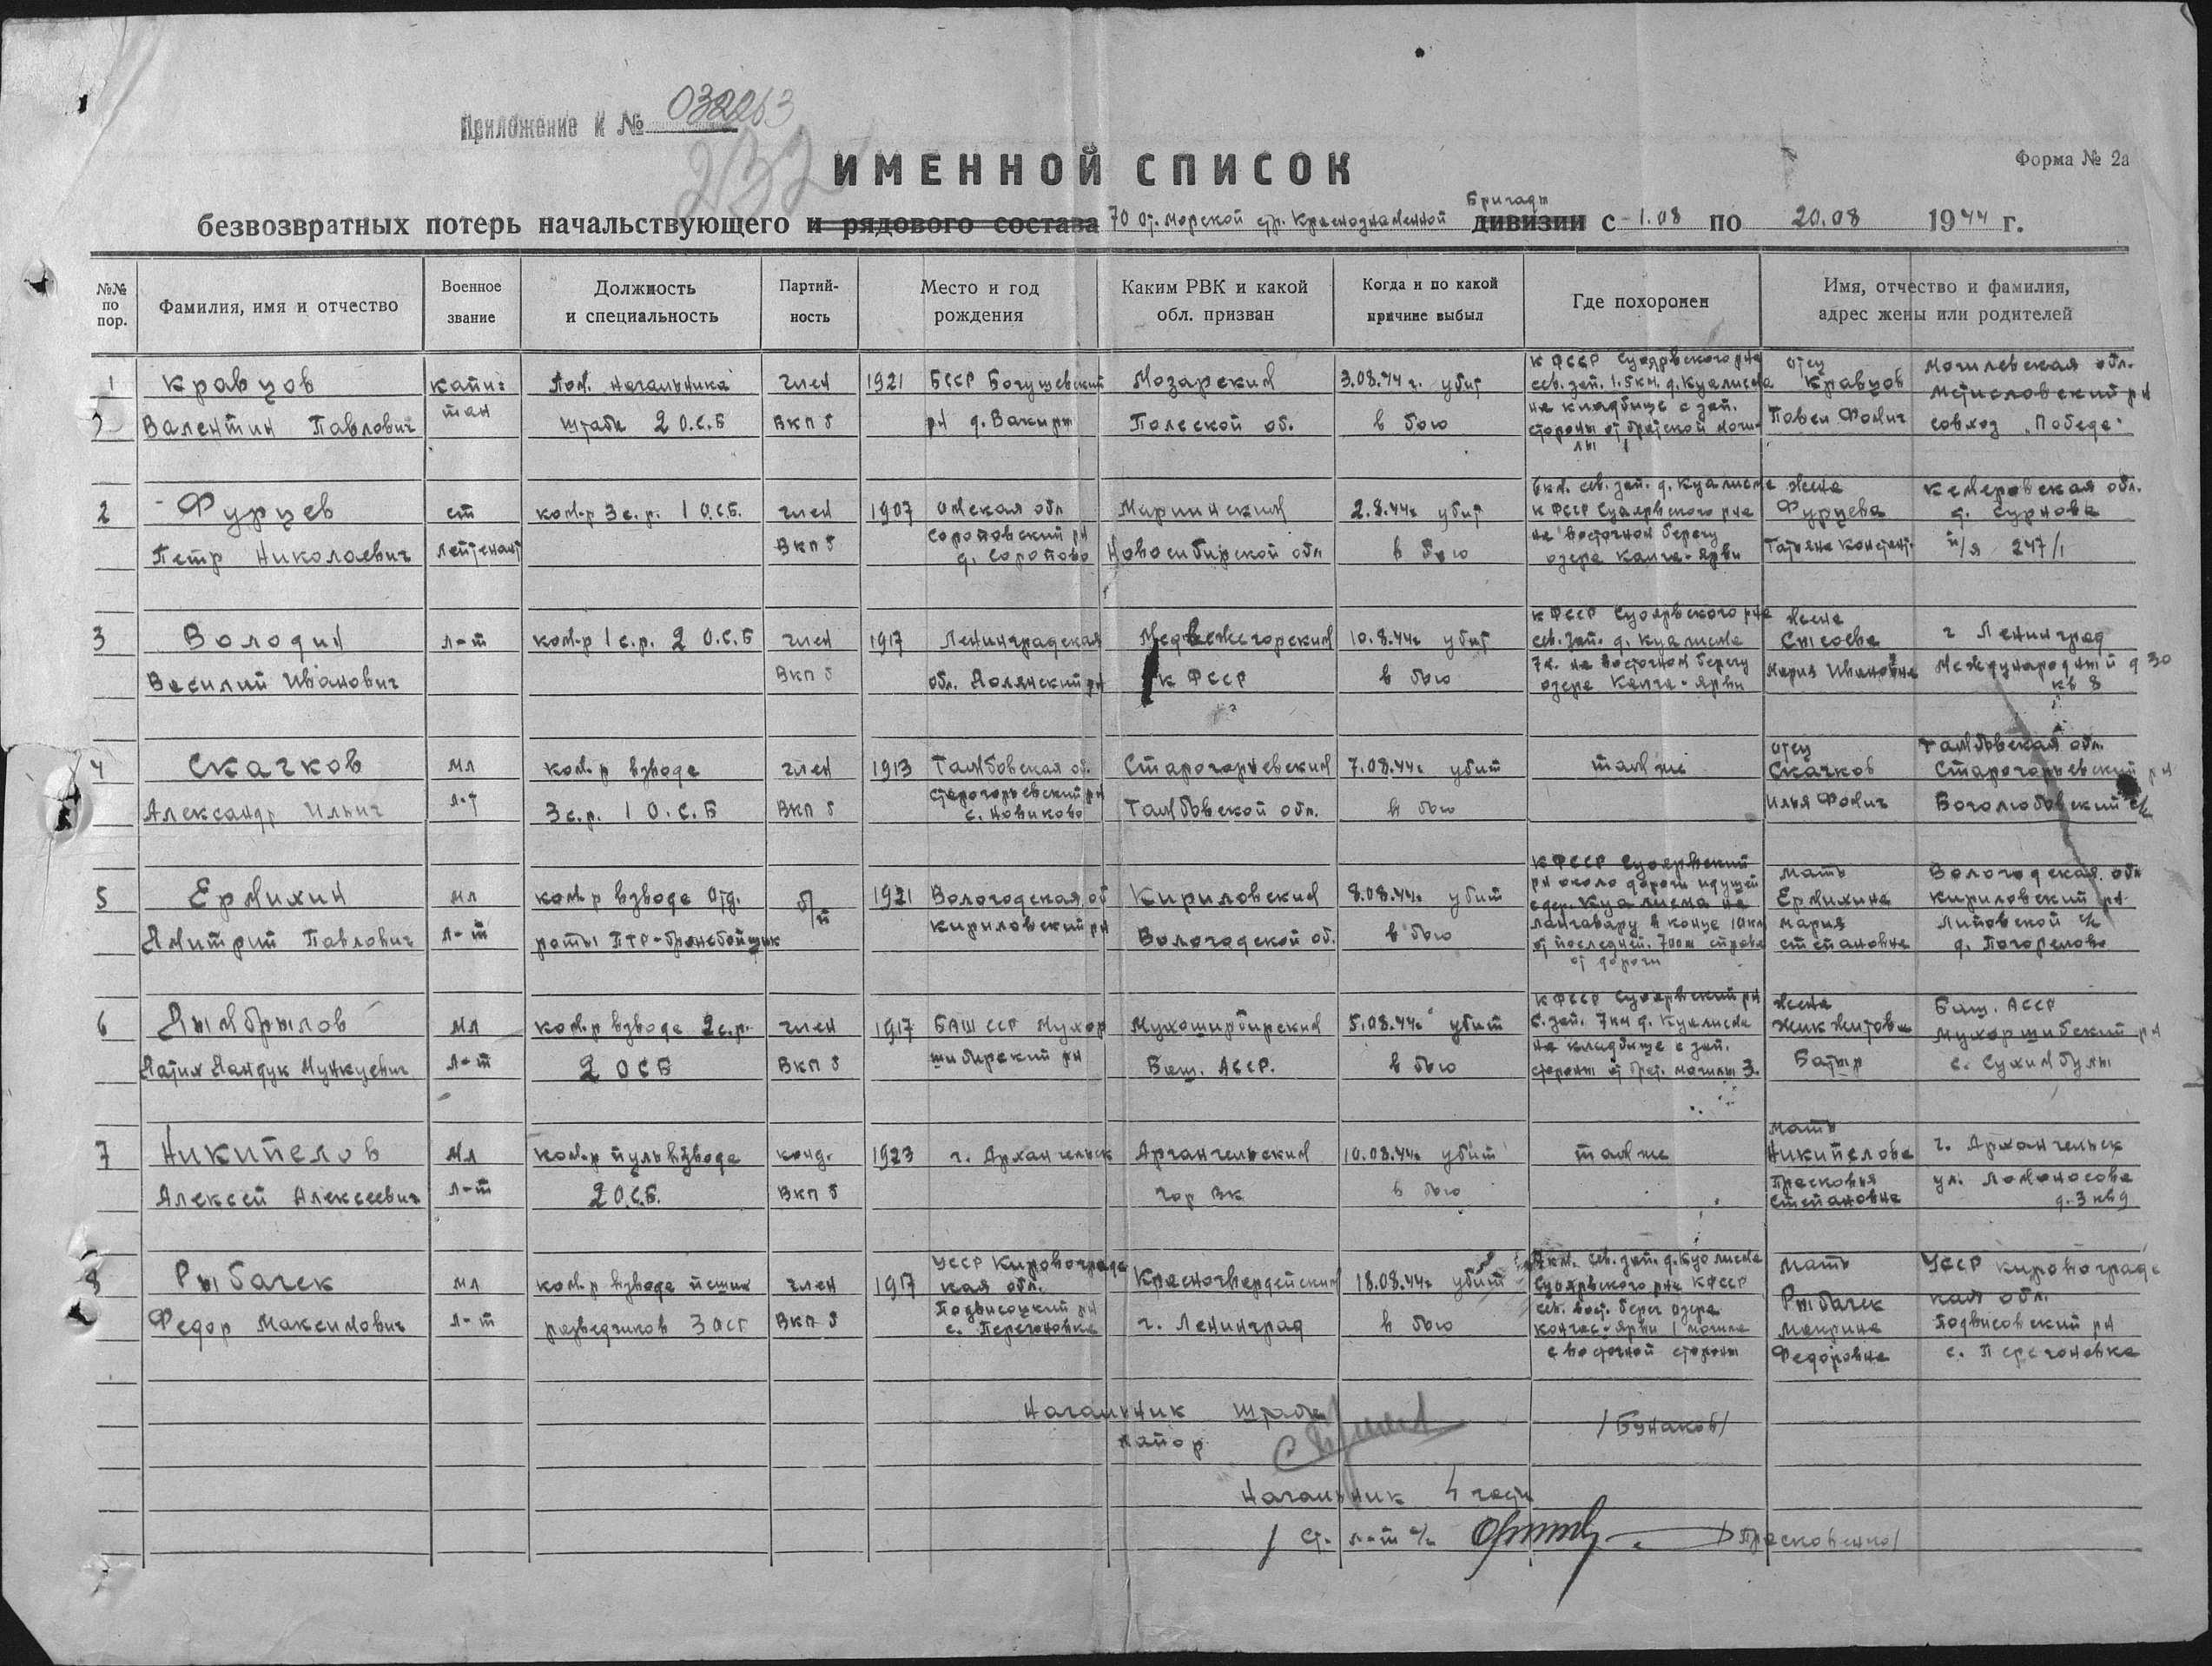 Приложение к № 032263
232
ИМЕННОЙ СПИСОК
Форма № 2а
безвозвратных потерь начальствующего и рядового состава 70 от. морской стр. Краснознаменной Бригады дивизии с 1.08 по 20.08 1944 г.
№№ по пор.
Фамилия, имя и отчество
Военное звание
Должность и специальность
Партий-ность
Место и год рождения
Каким РВК и какой обл. призван
Когда и по какой причине выбыл
Где похоронен
Имя, отчество и фамилия, адрес жены или родителей
1
Кравцов
Валентин Павлович
капи-
тан
Пом. начальника
штаба 2 О.С.Б
член
ВКПб
1921 БССР Богушевский
рн д. Вакиры
Мозарским
Полеской об.
3.08.44 г. убит
в бою
К ФССР Суоярвского рна
сев. зап. 1.5 км. д. Куалисма
на кладбище с зап.
стороны от братской моги-
лы 1
отец
Кравцов
Павел Фомич
Могилевская обл.
Мстисловский рн
совхоз "Победа"
2
Фурцев
Петр Николаевич
ст
лейтенант
ком-р 3 с.р. 1 О.С.Б.
член
ВКПб
1907 Омская обл
Сороповский рн
д. Соропово
Мариинским
Новосибирской обл
2.8.44г убит
в бою
6км. сев. зап. д. Куалисма
К ФССР Суоярвского рна
на восточном берегу
озера Канга-Ярви
жена
Фурцева
Татьяна Констант.
Кемеровская обл.
п/я 247/1
3
Володин
Василий Иванович
л-т
ком-р 1 с.р. 2 О.С.Б
член
ВКПб
1917 Ленинградская
обл. Долянский рн
Медвежегорским
К ФССР
10.8.44г убит
в бою
К ФССР Суоярвского рна
сев. зап. д. Куалисма
7к. на восточном берегу
озера Канга-Ярви
жена
Сысоева
Мария Ивановна
г Ленинград
Международный д 30
кв 8
4
Скачков
Александр Ильич
мл
л-т
ком-р взвода
3 с.р. 1 О.С.Б
член
ВКПб
1913 Тамбовская об.
Старогорьевский рн
с. Новиково
Старогорьевским
Тамбовской обл.
7.08.44г убит
в бою
там же
отец
Скачков
Илья Фомич
Тамбовская обл.
Старогорьевский рн
Боголюбовский с/с
5
Ермихин
Дмитрий Павлович
мл
л-т
ком-р взвода отд.
роты ПТР-бронебойщик
б/п
1921 Вологодская об
Кириловский рн
Кириловским
Вологодской об.
8.08.44г убит
в бою
К ФССР Суоярвский
рн около дороги идущей
с дер. Куалисма на
Лонгавару в конце 10 км
от последней. 700 м справа
от дороги
мать
Ермихина
Мария
Степановна
Вологодская обл
Кириловский рн
Липовской с/с
д. Погорелово
6
Дымбрылов
Латип Дандук Мункуевич
мл
л-т
ком-р взвода 2 с.р.
2 ОСБ
член
ВКПб
1917 БАШ ССР Мухор
шибирский рн
Мухоширбирским
Баш. АССР.
5.08.44г убит
в бою
К ФССР Суоярвский рн
с. зап. 7км д. Куалисма
на кладбище с зап.
стороны от брат. могилы 3.
жена
Батыр
Баш. АССР
Мухоршибский рн
7
Никипелов
Алексей Алексеевич
мл
л-т
ком-р пульвзвода
2 О.С.Б.
канд.
ВКПб
1923 г. Архангельск
Архангельским
гор ВК
10.08.44г убит
в бою
там же
мать
Никипелова
Прасковья
Степановна
г. Архангельск
ул. Ломоносова
д. 3 кв 9
8
Рыбачек
Федор Максимович
мл
л-т
ком-р взвода пеших
разведчиков 3 ОСБ
член
ВКПб
1917 УССР Кировоградс
кая обл.
Подвисоцкий рн
с. Перегоновка
Красногвардейским
г. Ленинград
18.08.44г убит
в бою
7км. сев. зап. д. Куолисма
Суоярвского рна КФССР
сев. вост. берег озера
Конгас-Ярви 1 могила
с восточной стороны
мать
Рыбачек
Макрина
Федоровна
УССР Кировоградс
кая обл.
Подвисовский рн
с. Перегоновка
Начальник штаба
майор
/Бунаков/
Начальник 4 части
/ Ст. л-т а/с
/Прасковенко/